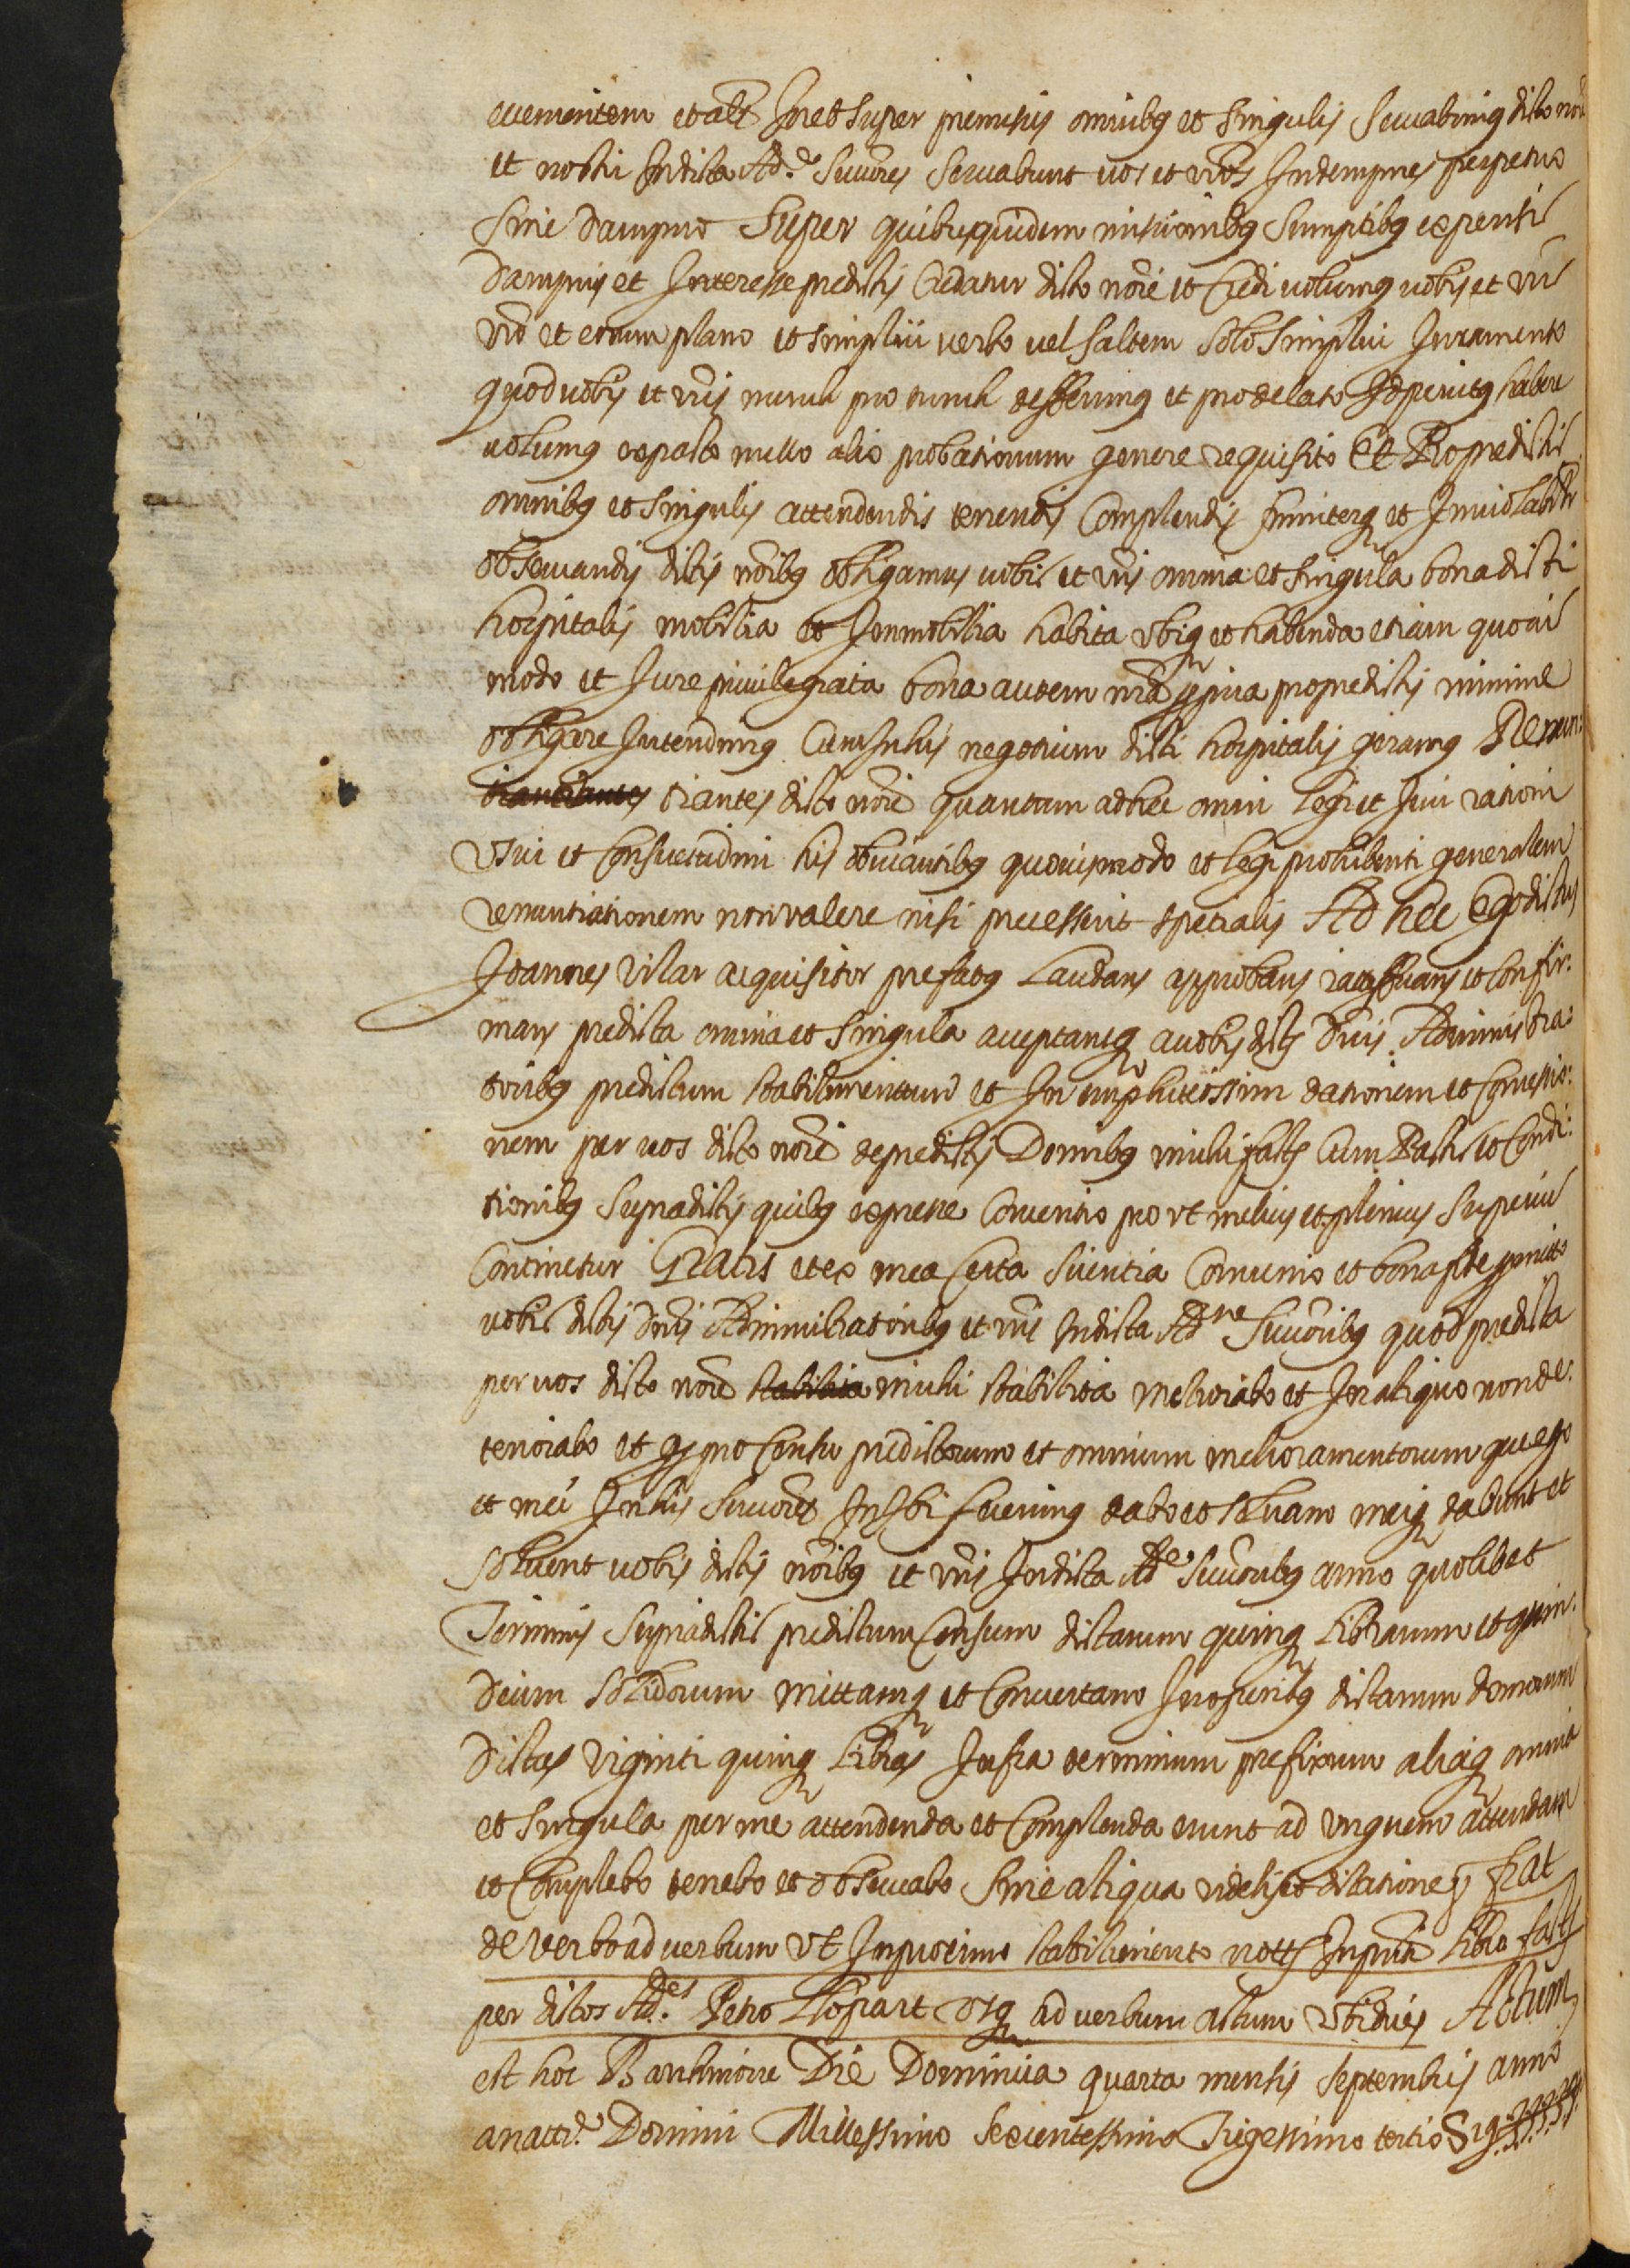 evenientem et alt In et super premissis omnibus et singulis servabimus dicto noē
et nostri In dicta Ad.e succōres servabunt vos et vrōs Indempnes perpetuo
sine dampno Super quibusquidem missionibus sumptibus expensis
dampnis et Interesse predictis Credatur dicto noīe et Credi volumus vobis et vris
vro et eorum plano et simplici verbo vel saltem solo simplici Juramento
quod vobis et vris nunch pro tunch defferimus et pro delato Ad penitus habere
volumus expacto nullo alio probationum genere requisito Et Pro predictis
omnibus et singulis attendendis tenendis Complendis firmiterq et Inviolabilr
observandis dictis noībus obligamus vobis et vris omnia et singula bona dicti
hospitalis mobilia et Immobilia habita ubiq et habenda etiam quovis
modo et Jure privilegiata bona autem nrā ppria pro predictis minime
obligare Intendimus Cum in his negotium dicti hospitalis geramus Renun:
tiantes dicto noīe quantum ad hec omni legi et Juri rationi
Usui et Consuetudini his obviantibus quovismodo et legi prohibenti generalem
renuntiationem non valere nisi precesserit specialis Ad hec Ego dictus
Joannes Vilar acquisitor prefatus Laudans approbans ratifficans et Confir:
mans predicta omnia et singula acceptansq a vobis dictis Dnis Administra:
toribus predictum stabilimentum et In emphiteossim dationem et Concessio:
nem per vos dicto noīe de predictis Domibus michi factis Cum Pactis et Condi:
tionibus supradictis quibus expresse Consentio pro ut melius et plenius superius
Continetur Gratis et ex mea Certa scientia Convenio et bona fide pmitto
vobis dictis Dnis Administratoribus et vris In dicta Adne Succōribus quod predicta
per vos dicto noīe stabilita michi stabilita meliorabo et In aliquo non de:
teriorabo et q pro Censu predictorum et omnium melioramentorum que ego
et mei In his succōres In Ibi fecerimus dabo et solvam meiq dabunt et
Solvent vobis dictis noībus et vris In dicta Ade Succōribus anno quolibet
Terminis Supradictis predictum Censum dictarum quinq Librarum et quin:
decim solidorum mittamq et Convertam In operibus dictarum domorum
Dictas Viginti quinq Libras Infra terminum prefixum aliaq omnia
et singula per me attendenda et Complenda erunt ad unguem attendam
et Complebo tenebo et observabo sine aliqua videlicet dilatione fiat
de verbo ad verbum Ut In proximo stabilimento nottō In prnti Libro facto
per dictos Ad.es Petro Llopart Usq ad verbum actum Ubi dicis Actum
est hoc Barchinone Die Dominica quarta mensis Septembris anno
a natte Domini Millessimo Sexcentessimo Trigessimo tertio Sig